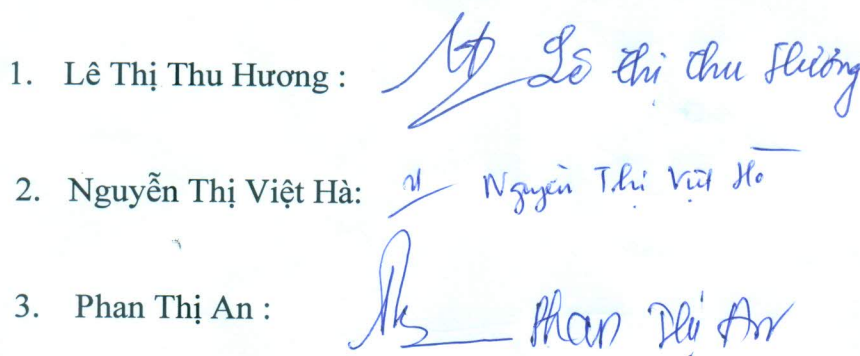 1. Lê Thị Thu Hương : Lê Thị Thu Hương
2. Nguyễn Thị Việt Hà: Nguyễn Thị Việt Hà
3. Phan Thị An : Phan Thị An